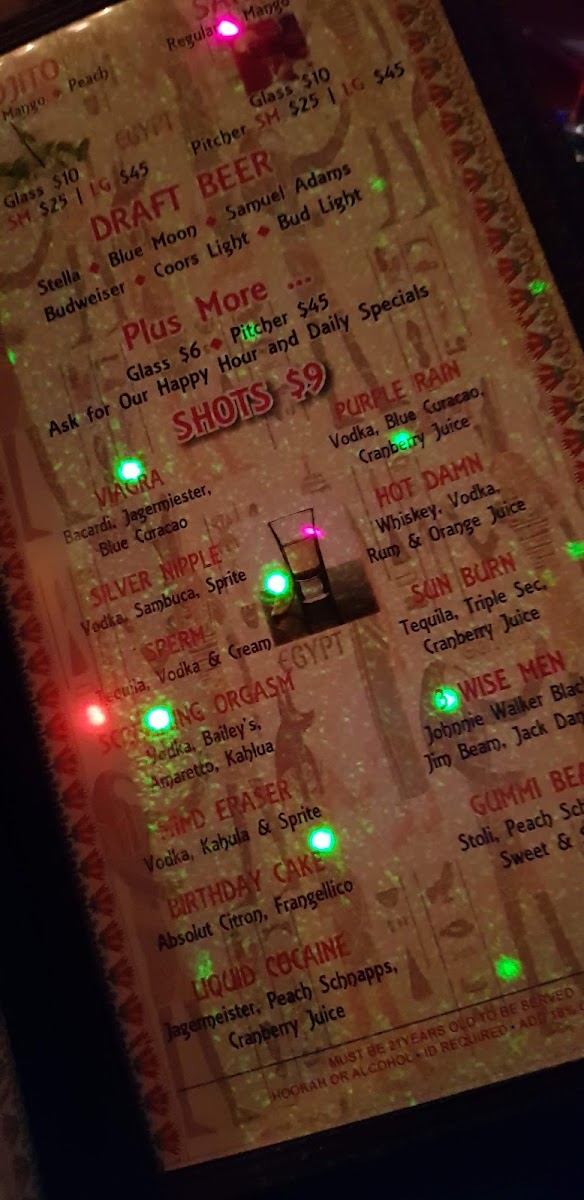 Regular Mango
Mango ♦ Peach
Glass $10
SM $25 | LG $45
Glass $10
Pitcher SM $25 | LG $45
EGYPT
DRAFT BEER
Stella ♦ Blue Moon ♦ Samuel Adams
Budweiser ♦ Coors Light ♦ Bud Light
Plus More ...
Glass $6 ♦ Pitcher $45
Ask for Our Happy Hour and Daily Specials
SHOTS $9
VIAGRA
Bacardi, Jagermiester,
Blue Curacao
SILVER NIPPLE
Vodka, Sambuca, Sprite
SPERM
Tequila, Vodka & Cream
ORGASM
Vodka, Bailey's,
Amaretto, Kahlua
MIMD ERASER
Vodka, Kahula & Sprite
BIRTHDAY CAKE
Absolut Citron, Frangellico
LIQUID COCAINE
Jagermeister, Peach Schnapps,
Cranberry Juice
EGYPT
PURPLE RAIN
Vodka, Blue Curacao,
Cranberry Juice
HOT DAMN
Whiskey, Vodka,
Rum & Orange Juice
SUN BURN
Tequila, Triple Sec,
Cranberry Juice
3 WISE MEN
Johnnie Walker Blac
Jim Beam, Jack Dan
GUMMI BEA
Stoli, Peach Sch
Sweet &
MUST BE 21 YEARS OLD TO BE SERVED
HOOKAH OR ALCOHOL • ID REQUIRED • ADD 18%